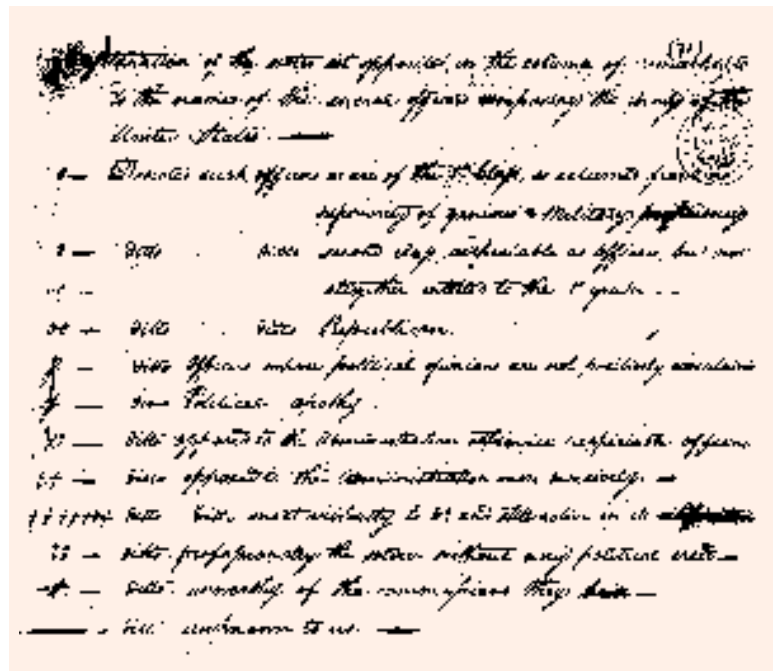 Explanation of the notes set opposite, in the column of
To the names of the several officers composing the army of the
United States.
Denotes such officers as are of the 1st Class, so esteemed from a
superiority of genius & Military
Ditto Ditto second class, respectable as officers, but not
altogether entitled to the 1st grade
Ditto Ditto Republican.
Ditto Officers whose political opinions are not positively ascertained
Ditto Political apathy.
Ditto opposed to the Administration, otherwise respectable officers
Ditto opposed to the Administration more decisively
Ditto Ditto most violently to do and still active in its
Ditto professionally the soldier without any political creed
Ditto unworthy of the commissions they bear
Ditto unknown to us.